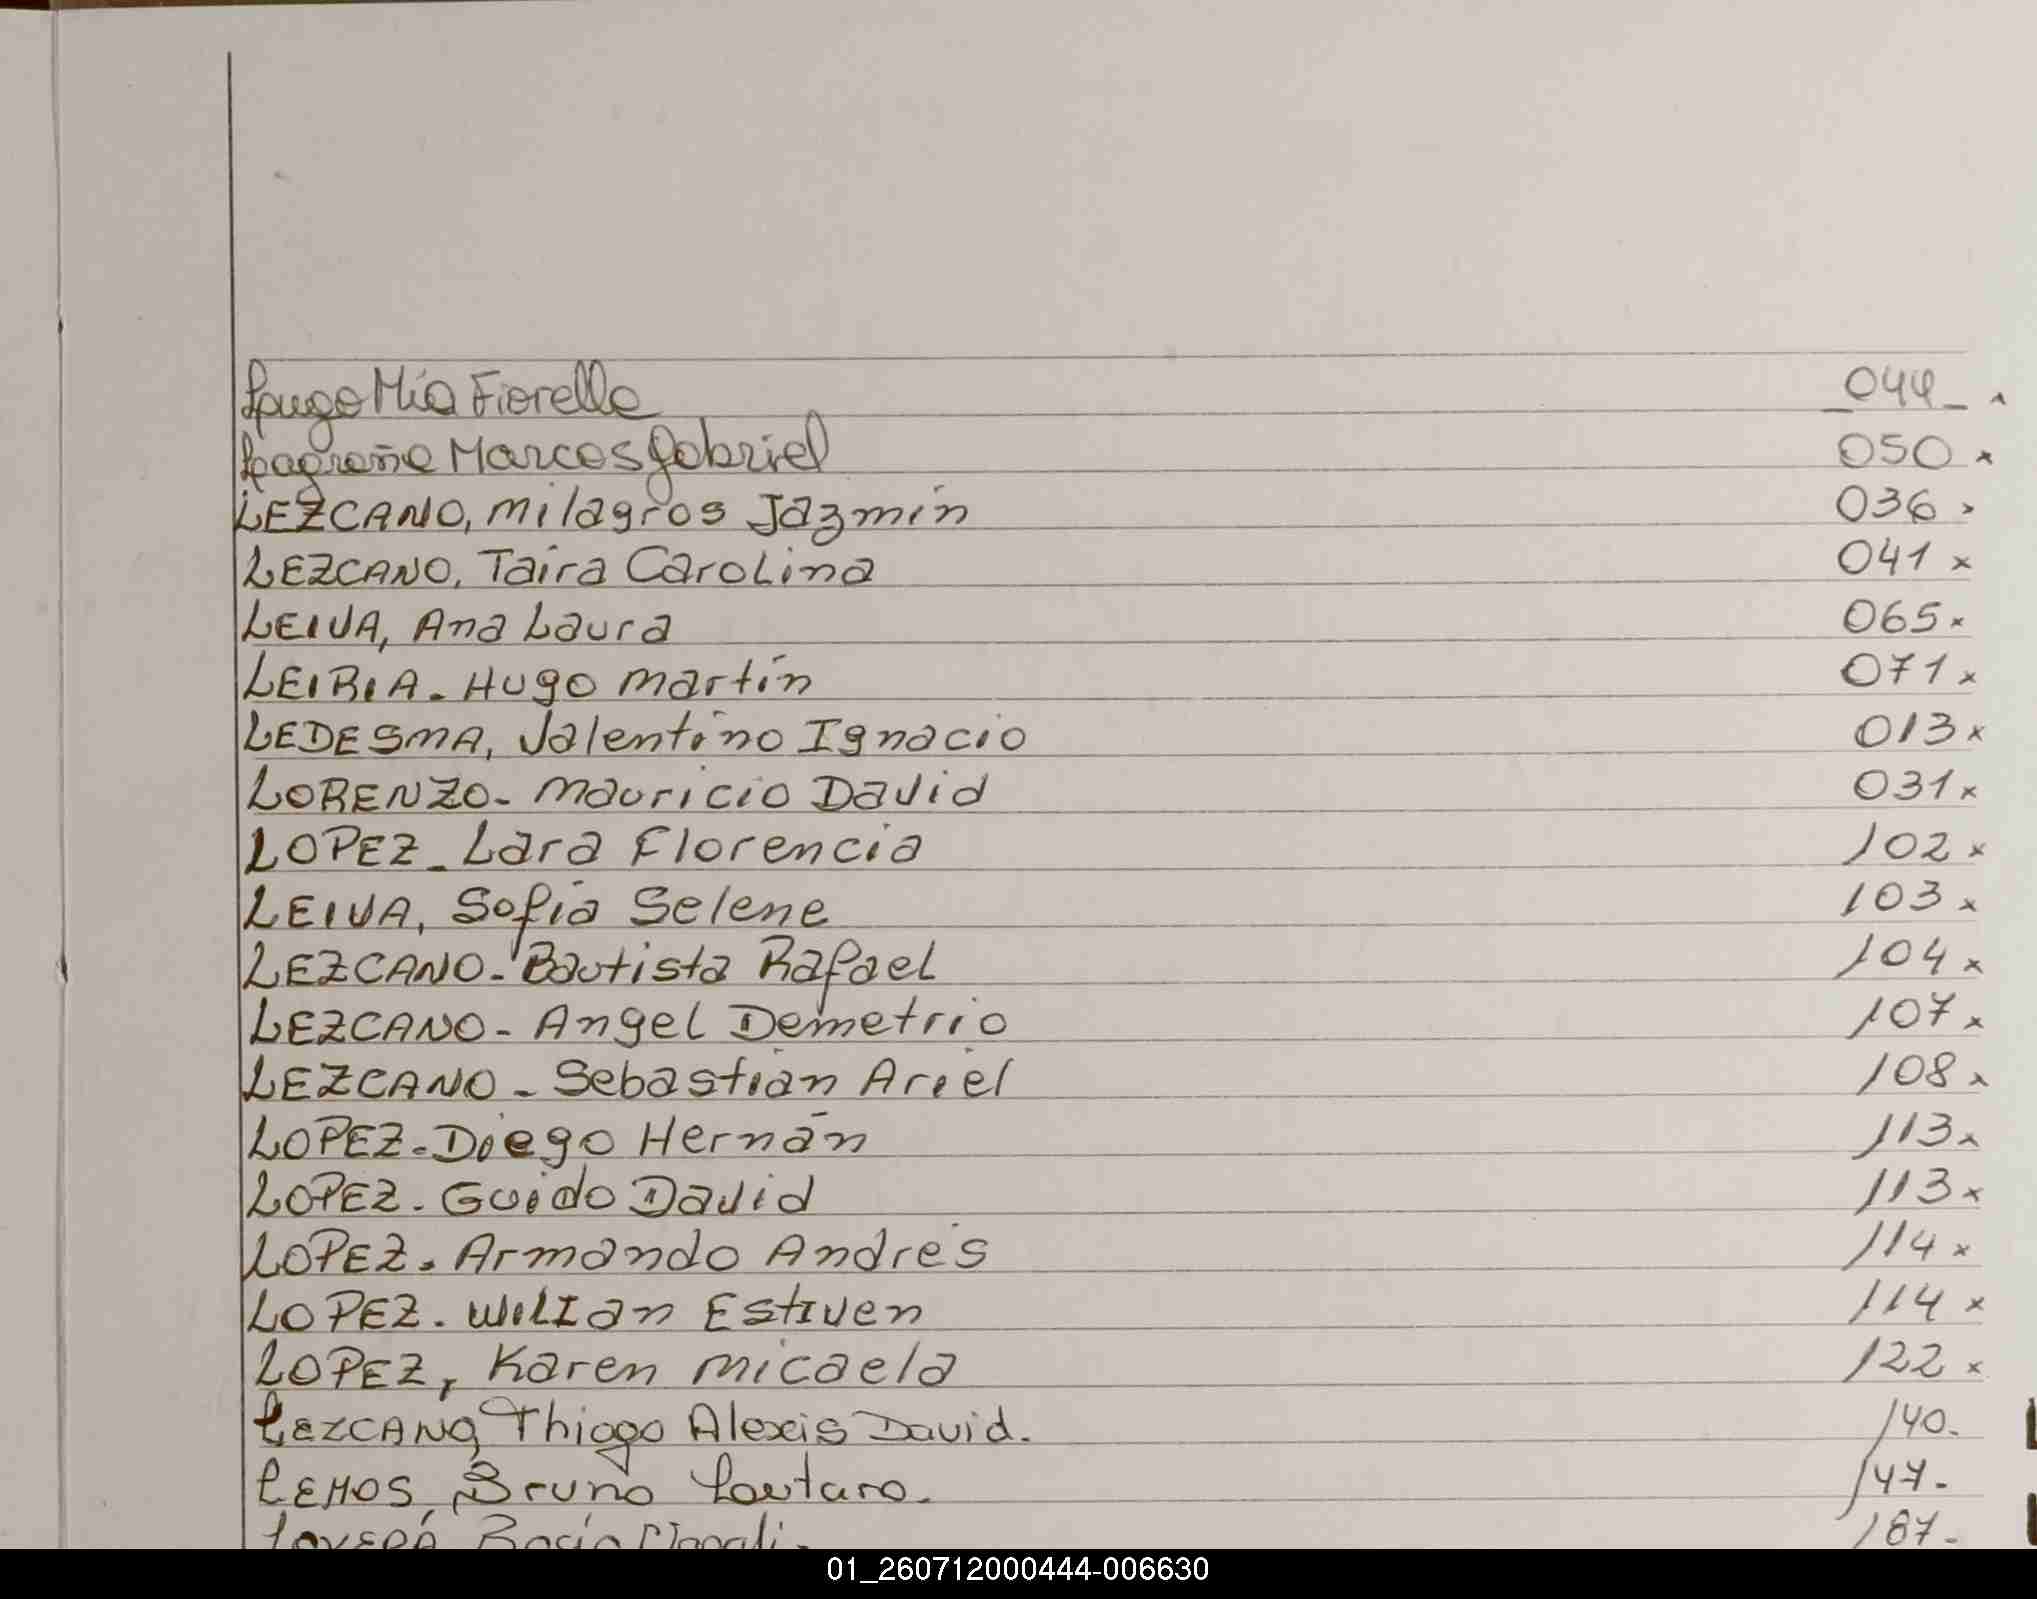 Lougo Mía Fiorella 044 -
Lagraña Marcos Gabriel 050 x
LEZCANO, Milagros Jazmín 036 x
LEZCANO, Taira Carolina 041 x
LEIVA, Ana Laura 065 x
LEIRIA - Hugo Martín 071 x
LEDESMA, Valentino Ignacio 013 x
LORENZO - Mauricio David 031 x
LOPEZ - Lara Florencia 102 x
LEIVA, Sofía Selene 103 x
LEZCANO - Bautista Rafael 104 x
LEZCANO - Angel Demetrio 107 x
LEZCANO - Sebastián Ariel 108 x
LOPEZ - Diego Hernán 113 x
LOPEZ - Guido David 113 x
LOPEZ - Armando Andrés 114 x
LOPEZ - Wilian Estiven 114 x
LOPEZ, Karen Micaela 122 x
LEZCANO, Thiago Alexis David. 140.
LEMOS, Bruno Lautaro. 147-
Rocío Magali. 187-
01_260712000444-006630